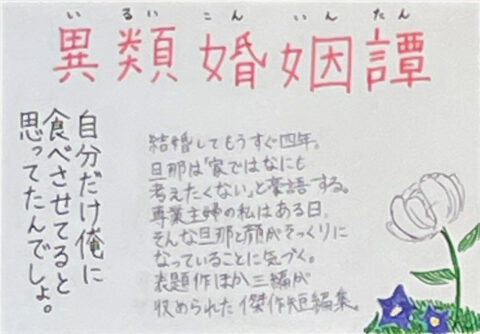 いるいこんいんたん
異類婚姻譚
自分だけ俺に
食べさせてると
思ってたんでしょ。
結婚してもうすぐ四年。
旦那は「家ではなにも
考えたくない」と豪語する。
専業主婦の私はある日、
そんな旦那と顔がそっくりに
なっていることに気づく。
表題作ほか三編が
収められた傑作短編集。